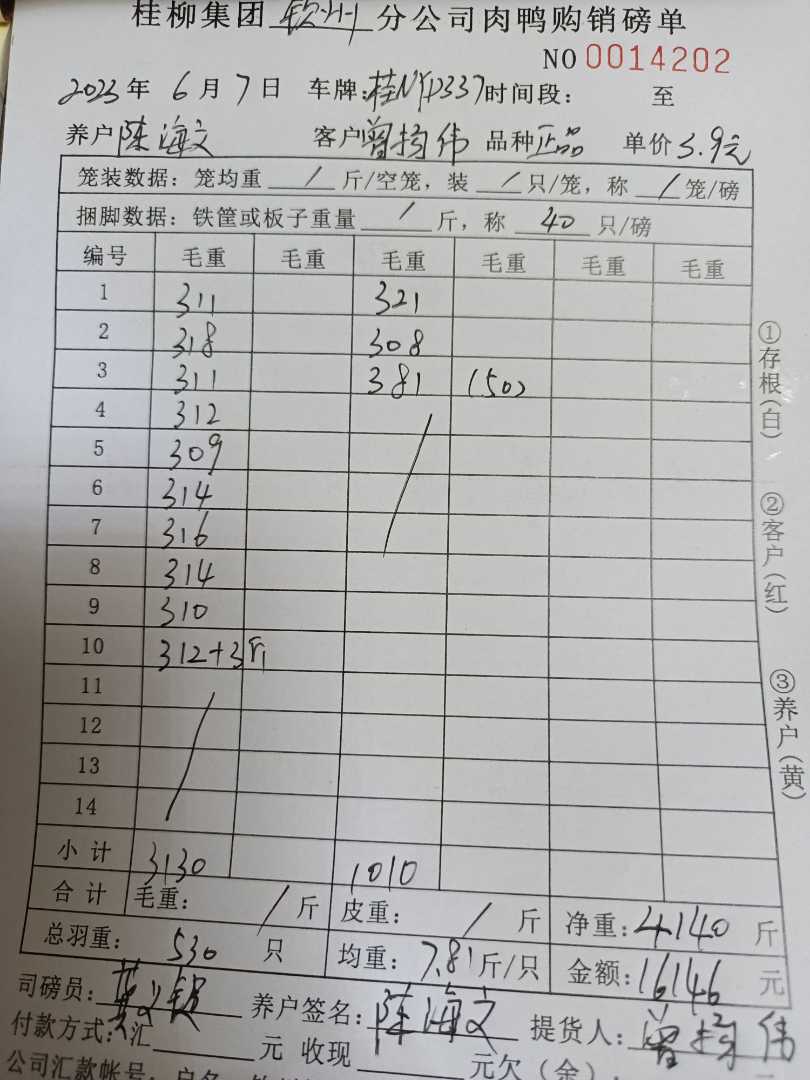 桂柳集团 钦州 分公司肉鸭购销磅单
NO 0014202
2023年 6月 7日 车牌: 时间段: 至
养户 陈海文 客户 曾扬伟 品种 正品 单价 3.9元
笼装数据: 笼均重 / 斤/空笼, 装 / 只/笼, 称 / 笼/磅
捆脚数据: 铁筐或板子重量 / 斤, 称 40 只/磅
编号 毛重 毛重 毛重 毛重 毛重 毛重
1 311 321
2 318 308
3 311 381 (50)
4 312 /
5 309
6 314
7 316
8 314
9 310
10 312+3斤
11 /
12
13
14
小计 3130 1010
合计 毛重: / 斤 皮重: / 斤 净重: 4140 斤
总羽重: 530 只 均重: 7.81 斤/只 金额: 16146 元
司磅员: 养户签名: 陈海文 提货人: 曾扬伟
付款方式: 汇 元 收现 元欠(余):
公司汇款帐号: 户名
①存根(白)
②客户(红)
③养户(黄)